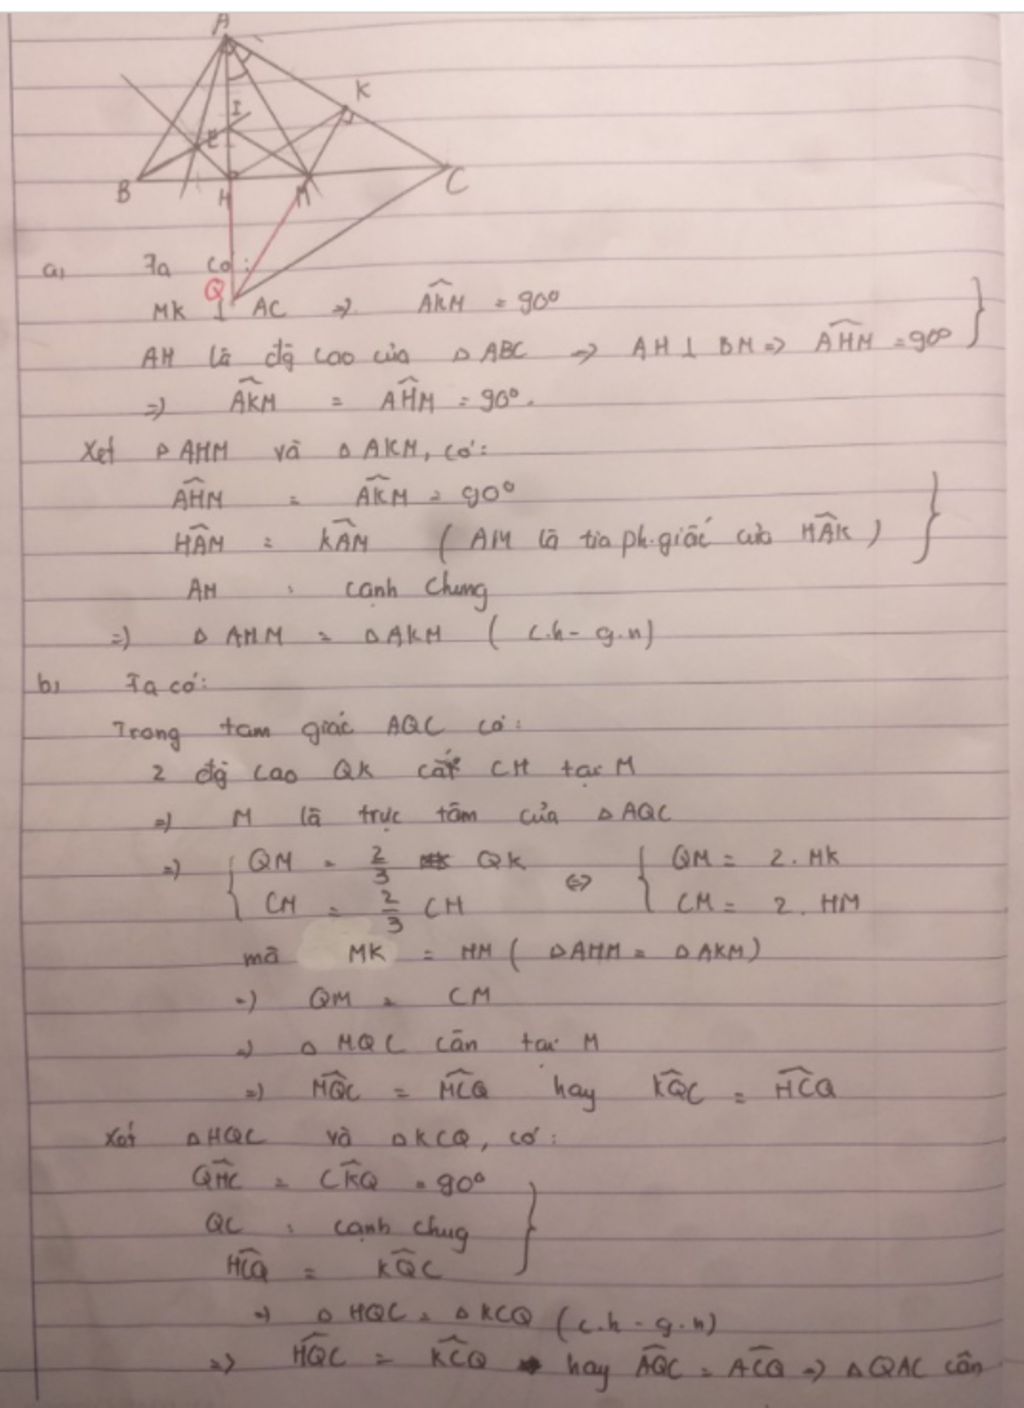 A
K
I
E
B
H
M
C
Q
a, Ta có:
MK ⊥ AC => AKM = 90°
AH là độ cao của △ABC => AH ⊥ BM => AHM = 90°
=> AKM = AHM = 90°.
Xét △AHM và △AKM, có:
AHM = AKM = 90°
HAM = KAM (AM là tia ph.giác của HAK)
AM : cạnh chung
=> △AHM = △AKM (c.h - g.n)
b, Ta có:
Trong tam giác AQC có:
2 độ cao QK cắt CH tại M
=> M là trực tâm của △AQC
=> { QM = 2/3 QK <=> { QM = 2. MK
CM = 2/3 CH CM = 2. HM
mà MK = HM (△AHM = △AKM)
=> QM = CM
=> △MQC cân tại M
=> MQC = MCQ hay KQC = HCQ
Xét △HQC và △KCQ, có:
QHC = CKQ = 90°
QC : cạnh chug
HCQ = KQC
=> △HQC = △KCQ (c.h - g.n)
=> HQC = KCQ hay AQC = ACQ => △QAC cân